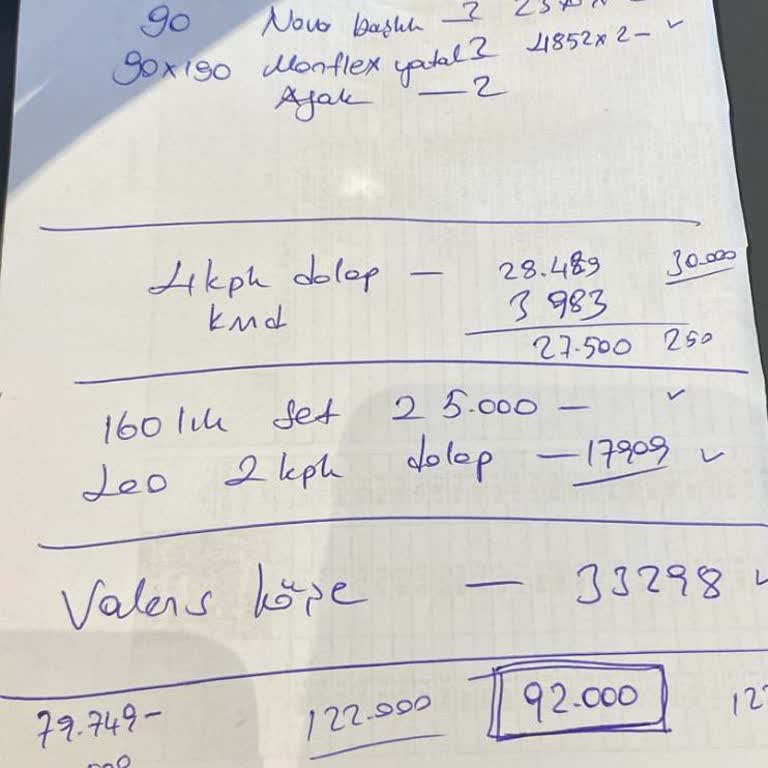 90 Novo başlık — 2
90x190 Monflex yatak 2 4852x2 – ✓
Ayak — 2
4 kph dolap — 28.489 30.000
kmd 3 983
27.500 250
160 lık set 25.000 — ✓
Leo 2 kph dolap — 17909 ✓
Valens köşe — 33298 ✓
79.749- 122.000 92.000 12